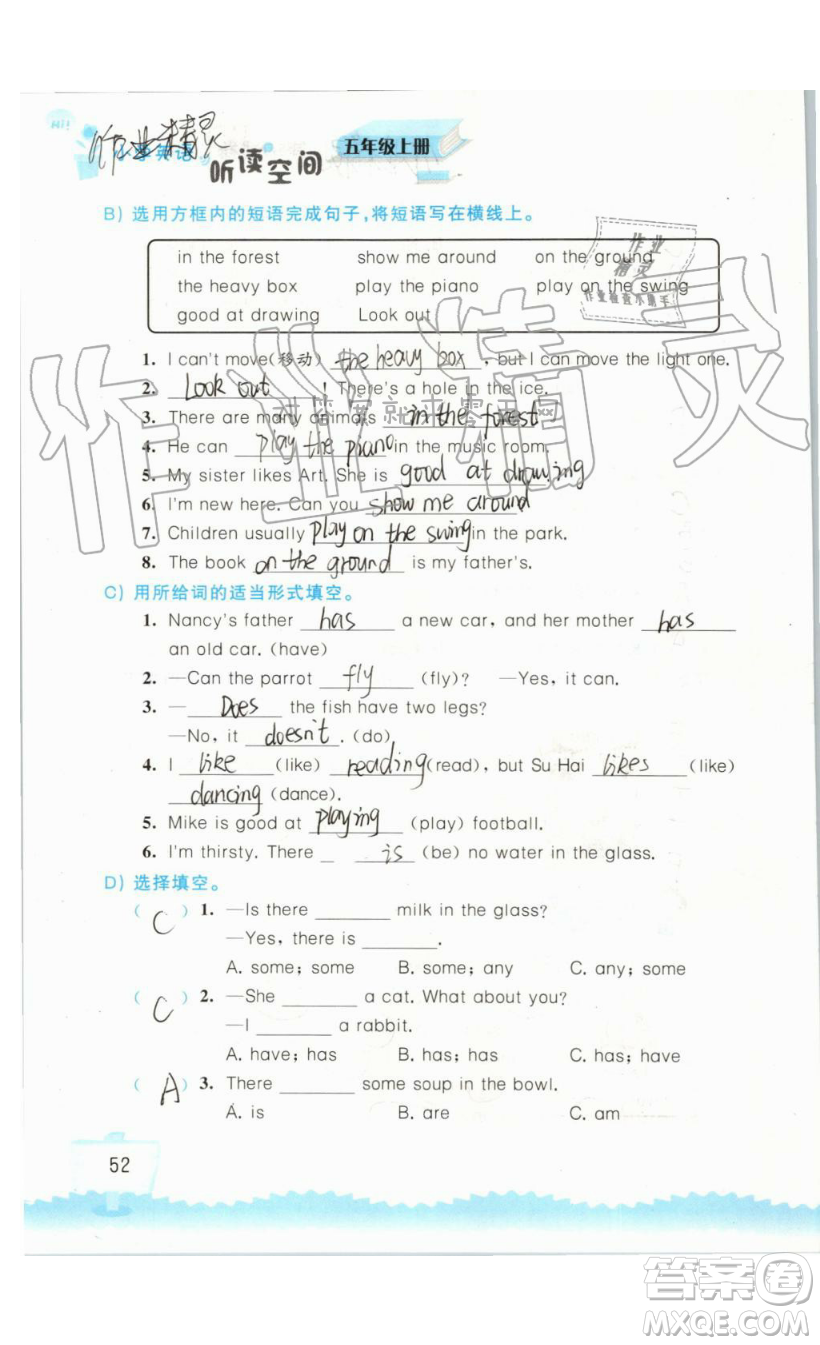 Hi!
作业精灵
小学英语
听读空间
五年级上册
B) 选用方框内的短语完成句子,将短语写在横线上。
in the forest show me around on the ground
the heavy box play the piano play on the swing
good at drawing Look out
作业
精灵
作业检查小助手
1. I can't move(移动) the heavy box , but I can move the light one.
2. Look out ! There's a hole in the ice.
3. There are many animals in the forest.
4. He can play the piano in the music room.
5. My sister likes Art. She is good at drawing
6. I'm new here. Can you show me around
7. Children usually play on the swing in the park.
8. The book on the ground is my father's.
作业精灵
C) 用所给词的适当形式填空。
1. Nancy's father has a new car, and her mother has
an old car. (have)
2. —Can the parrot fly (fly)? —Yes, it can.
3. — Does the fish have two legs?
—No, it doesn't . (do)
4. I like (like) reading (read), but Su Hai likes (like)
dancing (dance).
5. Mike is good at playing (play) football.
6. I'm thirsty. There is (be) no water in the glass.
D) 选择填空。
( C ) 1. —Is there ______ milk in the glass?
—Yes, there is ______.
A. some; some B. some; any C. any; some
( C ) 2. —She ______ a cat. What about you?
—I ______ a rabbit.
A. have; has B. has; has C. has; have
( A ) 3. There ______ some soup in the bowl.
A. is B. are C. am
52
答案圈
MXQE.COM